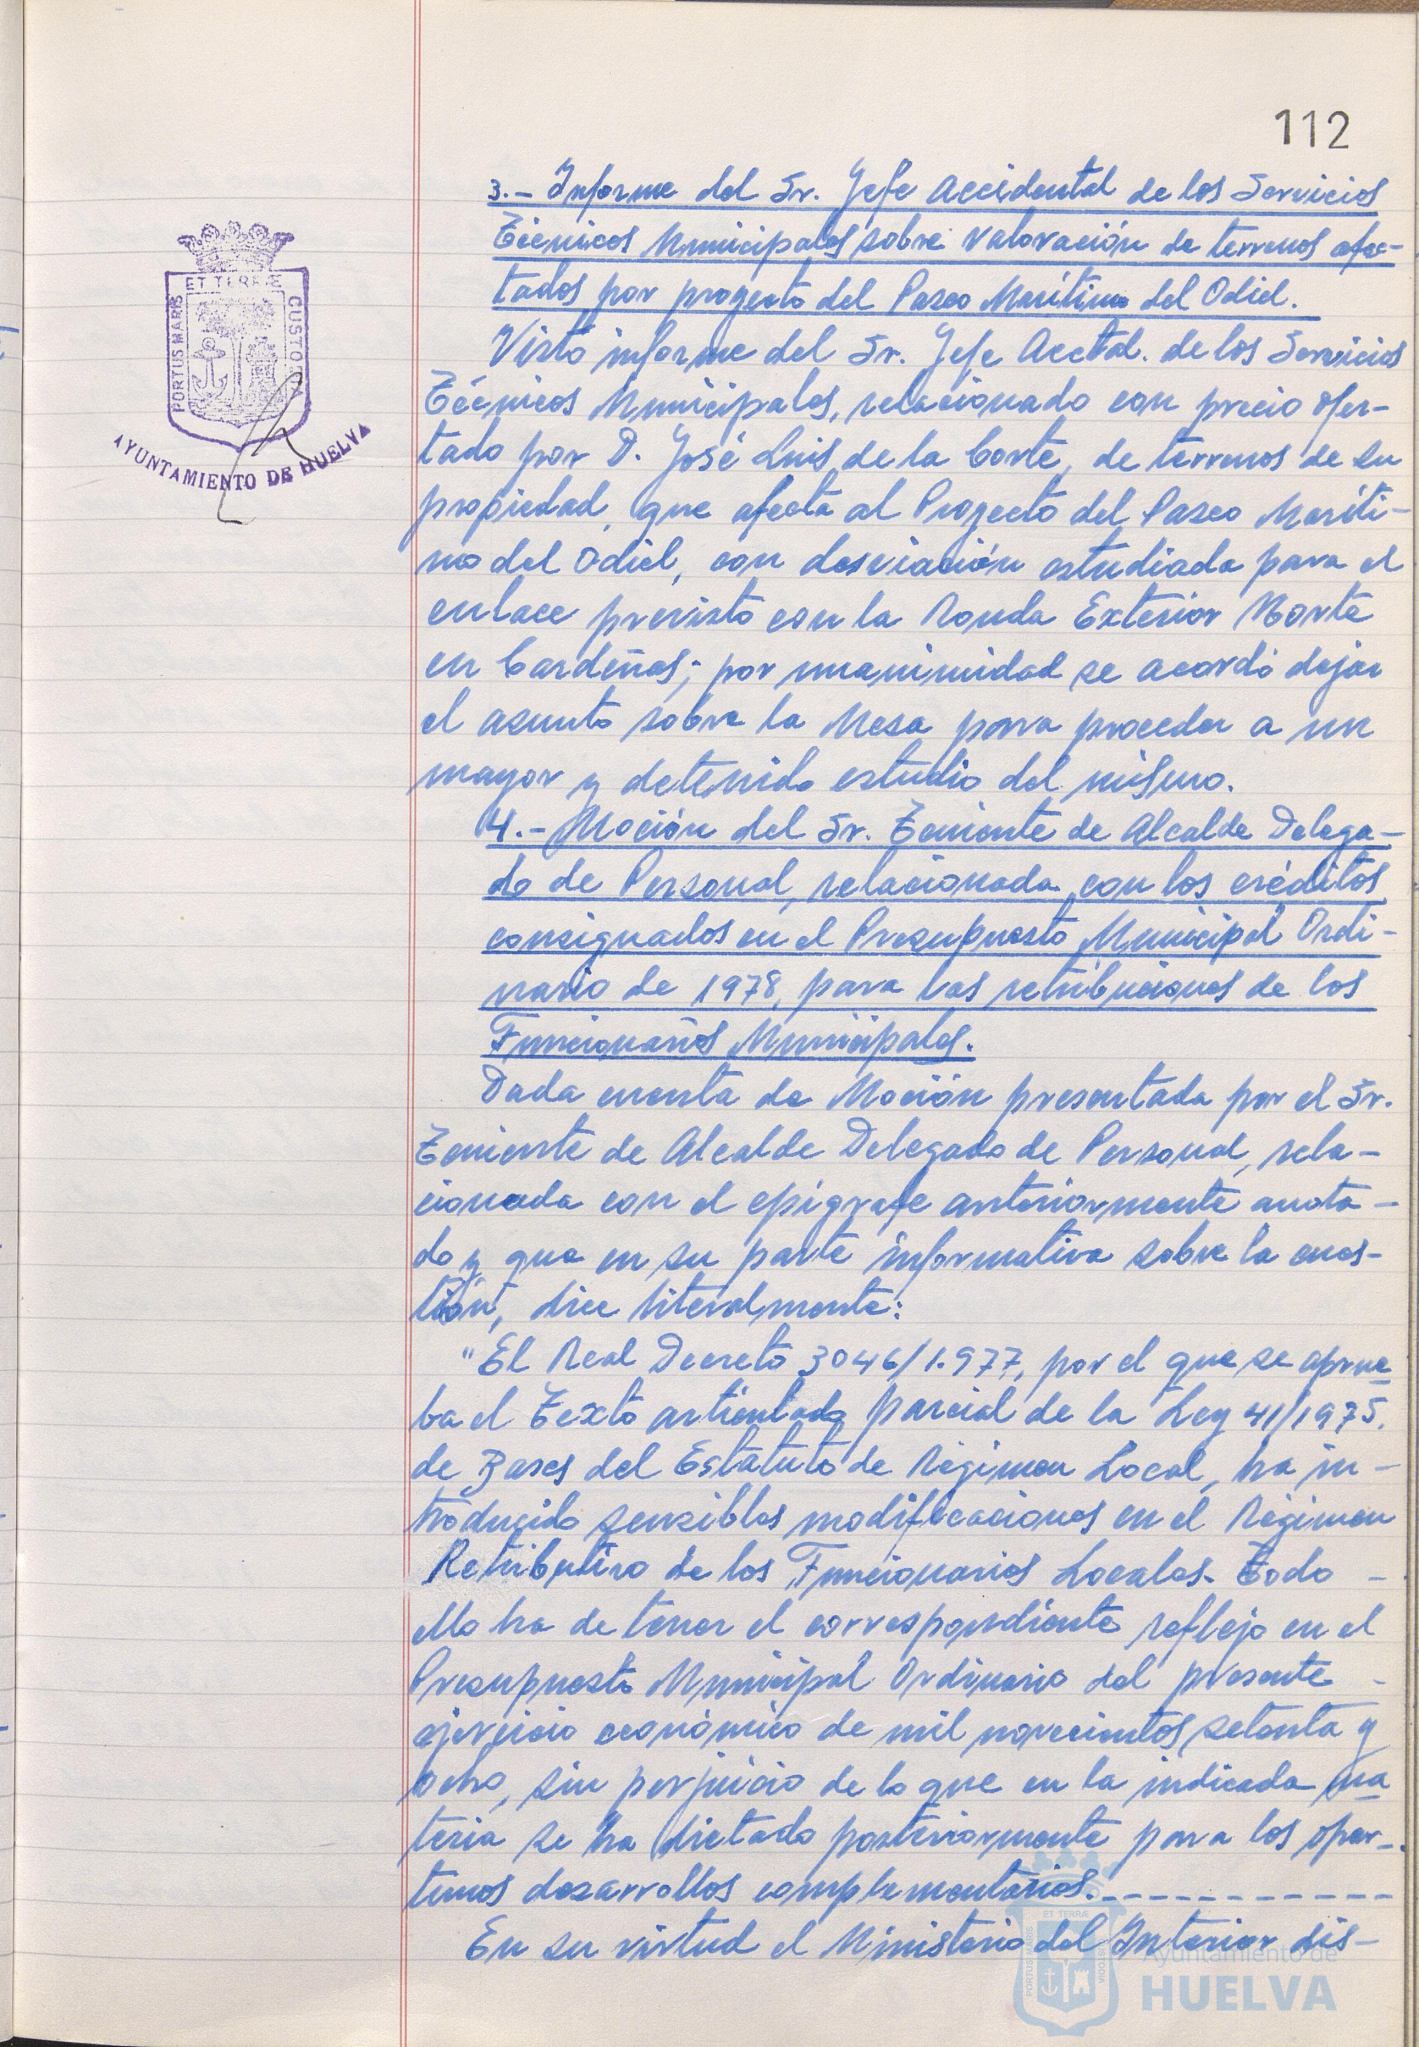 112
3.- Informe del Sr. Jefe Accidental de los Servicios
Técnicos Municipales sobre valoración de terrenos afec-
tados por proyecto del Paseo Marítimo del Odiel.
Visto informe del Sr. Jefe Acctal. de los Servicios
Técnicos Municipales, relacionado con precio ofer-
tado por D. José Luis de la Corte, de terrenos de su
propiedad, que afecta al Proyecto del Paseo Maríti-
mo del Odiel, con desviación estudiada para el
enlace previsto con la Ronda Exterior Norte
en Cardeñas; por unanimidad se acordó dejar
el asunto sobre la Mesa para proceder a un
mayor y detenido estudio del mismo.
4.- Moción del Sr. Teniente de Alcalde Delega-
do de Personal, relacionada con los créditos
consignados en el Presupuesto Municipal Ordi-
nario de 1978, para las retribuciones de los
Funcionarios Municipales.
Dada cuenta de Moción presentada por el Sr.
Teniente de Alcalde Delegado de Personal, rela-
cionada con el epígrafe anteriormente anota-
do y que en su parte informativa sobre la cues-
tión, dice literalmente:
"El Real Decreto 3046/1.977, por el que se aprue
ba el Texto articulado parcial de la Ley 41/1975,
de Bases del Estatuto de Régimen Local, ha in-
troducido sensibles modificaciones en el Régimen
Retributivo de los Funcionarios Locales. Todo -
ello ha de tener el correspondiente reflejo en el
Presupuesto Municipal Ordinario del presente -
ejercicio económico de mil novecientos setenta y
ocho, sin perjuicio de lo que en la indicada ma
teria se ha dictado posteriormente para los opor-
tunos desarrollos complementarios.- - - - - - - - - -
En su virtud el Ministerio del Interior dis-
PORTUS MARIS
ET TERRÆ
CUSTODIA
AYUNTAMIENTO DE HUELVA
PORTUS MARIS
ET TERRÆ
CUSTODIA
Ayuntamiento de
HUELVA